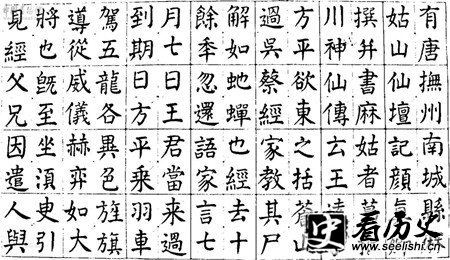 有唐撫州南城縣
姑山仙壇記顏
撰并書麻姑者
川神仙傳云王遠
方平欲東之括蒼山
過吳蔡經家教其尸
解如虵蟬也經去十
餘年忽還語家言七
月七日王君當來過
到期日方平乘羽車
駕五龍各異色旌旗
導從威儀赫弈如大
將也既至坐須史引
見經父兄因遣人與
史 看历史
www.seelishi.cn